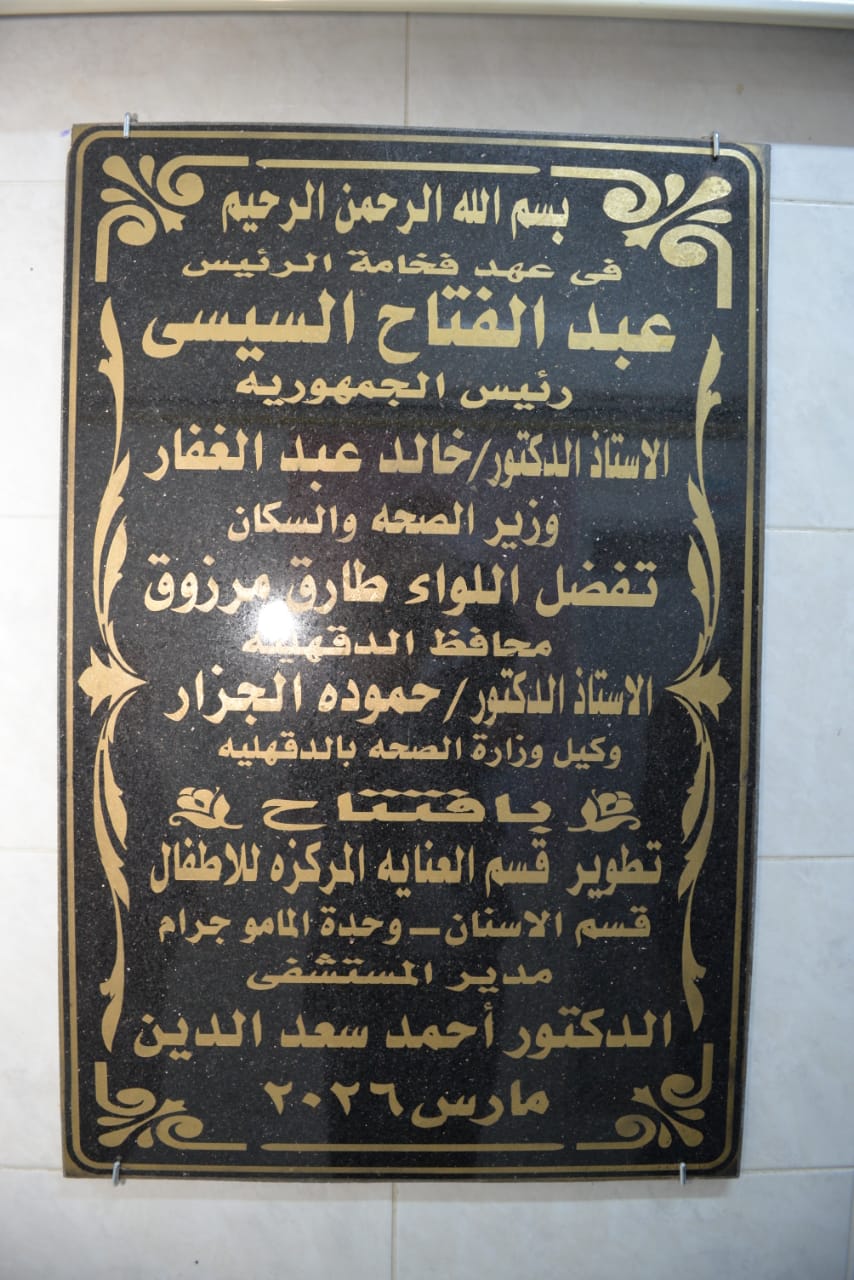 بسم الله الرحمن الرحيم
فى عهد فخامة الرئيس
عبد الفتاح السيسى
رئيس الجمهوريه
الاستاذ الدكتور/خالد عبد الغفار
وزير الصحه والسكان
تفضل اللواء طارق مرزوق
محافظ الدقهليه
الاستاذ الدكتور/حموده الجزار
وكيل وزارة الصحه بالدقهليه
بافتتاح
تطوير قسم العنايه المركزه للاطفال
قسم الاسنان - وحدة المامو جرام
مدير المستشفى
الدكتور أحمد سعد الدين
مارس ٢٠٢٦